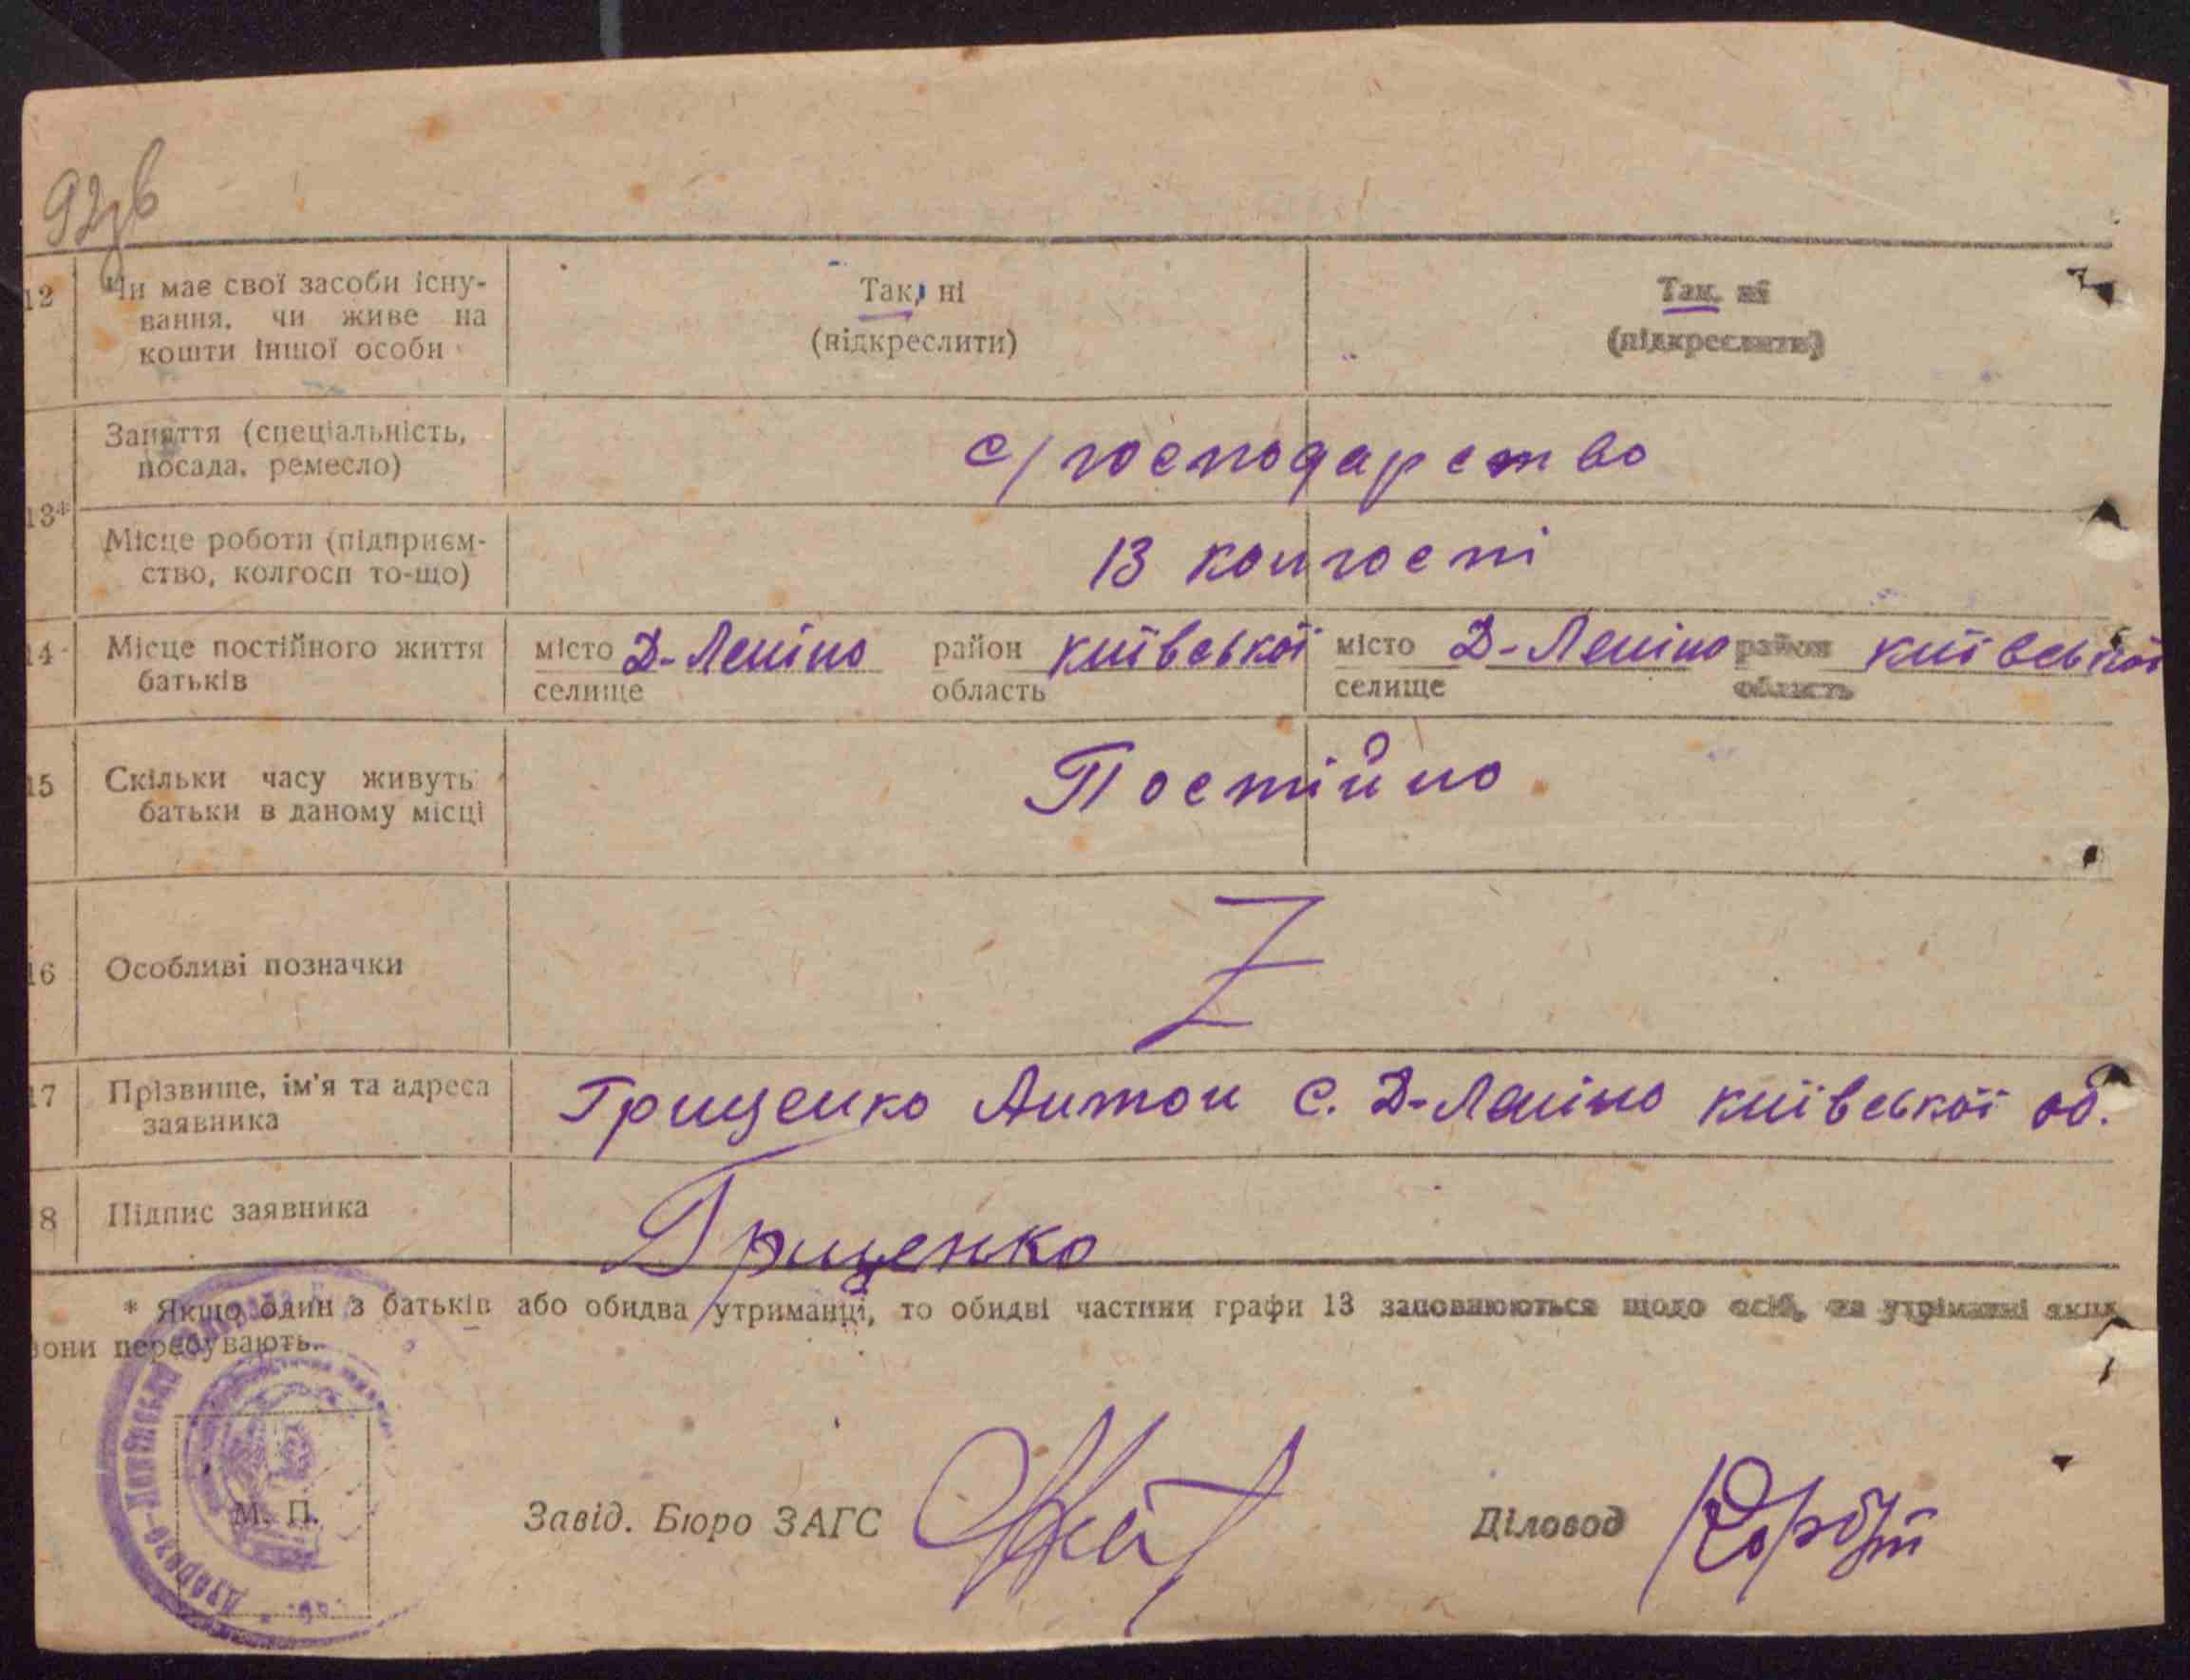 92зв
12 Чи має свої засоби існу-
вання, чи живе на
кошти іншої особи
Так, ні
(підкреслити)
Так, ні
(підкреслити)
13*
Заняття (спеціальність,
посада, ремесло)
с/господарство
Місце роботи (підприєм-
ство, колгосп то-що)
В колгоспі
14 Місце постійного життя
батьків
місто Д-Леніно район київської
селище область
місто Д-Леніно район київської
селище область
15 Скільки часу живуть
батьки в даному місці
Постійно
16 Особливі позначки
Z
17 Прізвище, ім'я та адреса
заявника
Грищенко Антон С. Д-Леніно київської об.
8 Підпис заявника
Грищенко
* Якщо один з батьків або обидва утриманці, то обидві частини графи 13 заповнюються щодо осіб, на утріманні яких
вони перебувають.
М. П.
Завід. Бюро ЗАГС
Діловод